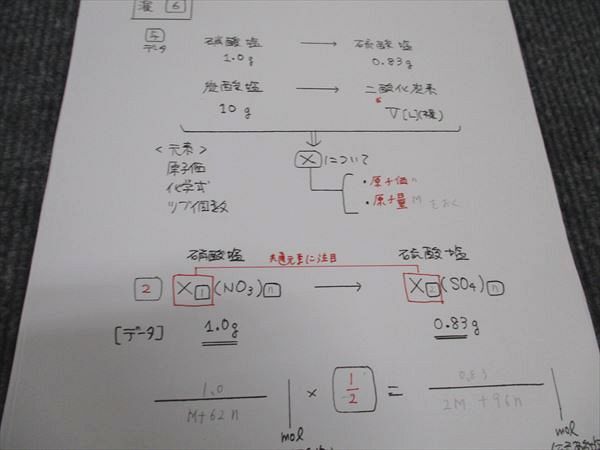 演 6
5
データ
硝酸塩 → 硫酸塩
1.0g 0.83g
炭酸塩 → 二酸化炭素
10g V[L](標)
<元素>
原子価
化学式
ツブ個数
Xについて
・原子価n
・原子量M をおく
硝酸塩 共通元素に注目 硫酸塩
2 X1(NO3)n → X2(SO4)n
[データ] 1.0g 0.83g
1.0 / M+62n mol × 1/2 = 0.83 / 2M+96n mol